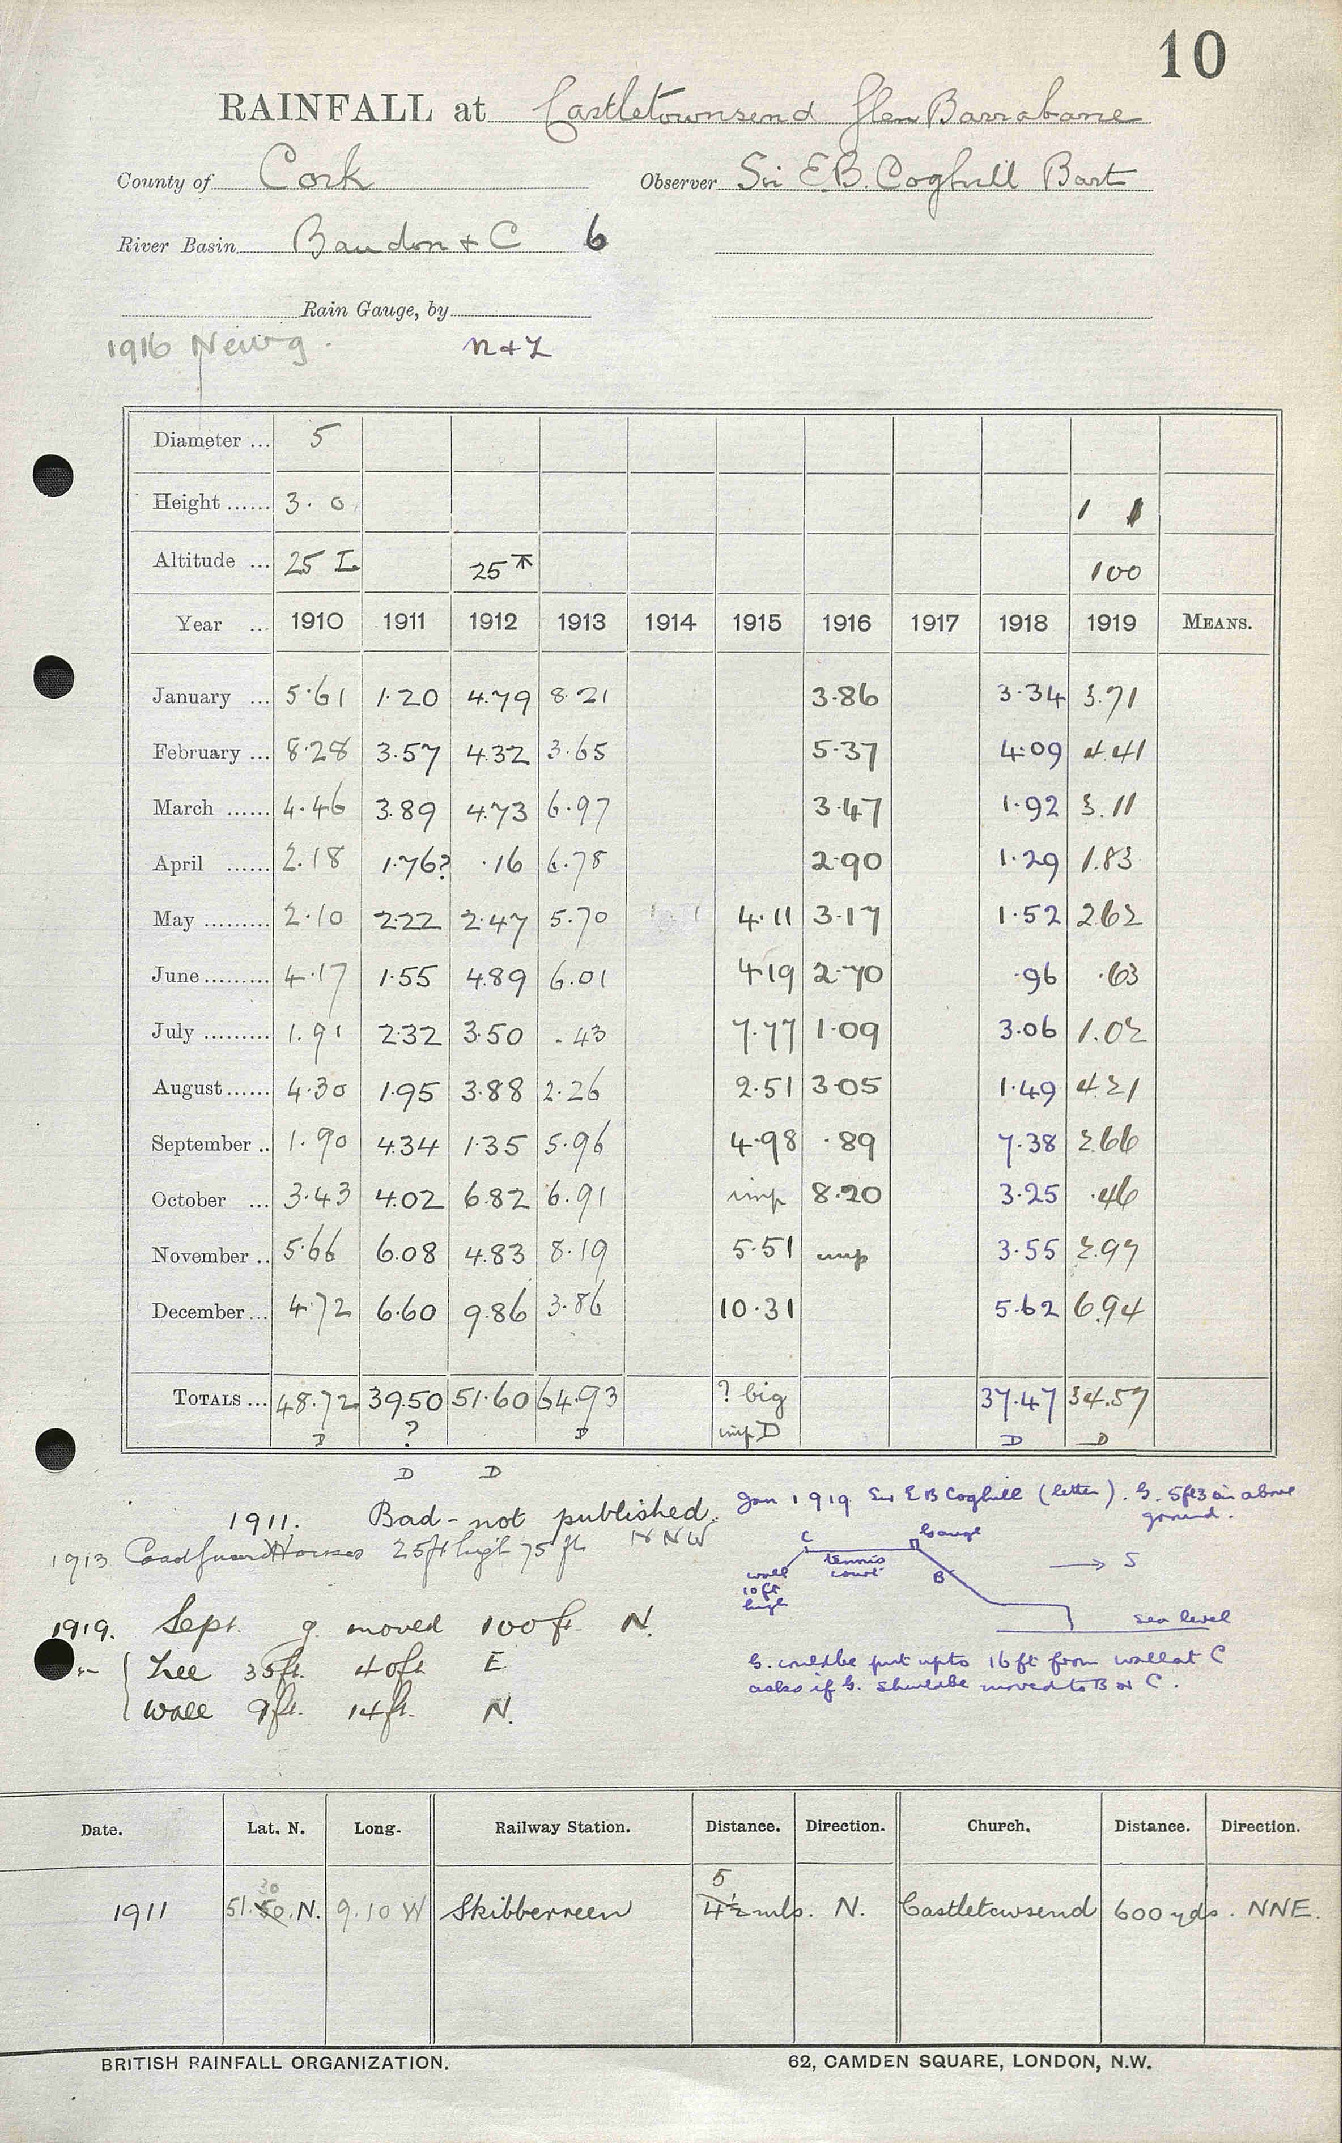 10
RAINFALL at Castletownsend Glen Barrahane
County of Cork Observer Sir E.B. Coghill Bart
River Basin Bandon + C 6
Rain Gauge, by
1916 New g. N+Z
Diameter ... 5
Height ...... 3. 0 1 1
Altitude ... 25 25 100
Year ... 1910 1911 1912 1913 1914 1915 1916 1917 1918 1919 MEANS.
January ... 5.61 1.20 4.79 8.21 3.86 3.34 3.71
February ... 8.28 3.57 4.32 3.65 5.37 4.09 4.41
March ...... 4.46 3.89 4.73 6.97 3.47 1.92 3.11
April ...... 2.18 1.76? .16 6.78 2.90 1.29 1.83
May ......... 2.10 2.22 2.47 5.70 4.11 3.17 1.52 2.62
June ......... 4.17 1.55 4.89 6.01 4.19 2.70 .96 .63
July ......... 1.91 2.32 3.50 .43 7.77 1.09 3.06 1.02
August ...... 4.30 1.95 3.88 2.26 2.51 3.05 1.49 4.21
September .. 1.90 4.34 1.35 5.96 4.98 .89 7.38 2.66
October ... 3.43 4.02 6.82 6.91 imp 8.20 3.25 .46
November .. 5.66 6.08 4.83 8.19 5.51 imp 3.55 2.97
December ... 4.72 6.60 9.86 3.86 10.31 5.62 6.94
TOTALS ... 48.72 39.50 51.60 64.93 ? big 37.47 34.57
D ? D imp D D D
D D
1911. Bad - not published.
1913 Coastguard Houses 25ft high 75 ft NNW
1919. Sept. g. moved 100 ft. N.
" Tree 35ft. 40ft E.
Wall 9ft. 14ft. N.
Jan 1919. Sir E B Coghill (letter). G. 5ft 3 in above
ground.
C Gauge
tennis
court
wall
10 ft
high
B
S
sea level
G. could be put up to 16 ft from wall at C
asks if G. should be moved to B or C.
Date. Lat. N. Long. Railway Station. Distance. Direction. Church. Distance. Direction.
30 5
1911 51.50. N. 9.10 W Skibbereen 4½ mls. N. Castletownsend 600 yds. NNE.
BRITISH RAINFALL ORGANIZATION. 62, CAMDEN SQUARE, LONDON, N.W.